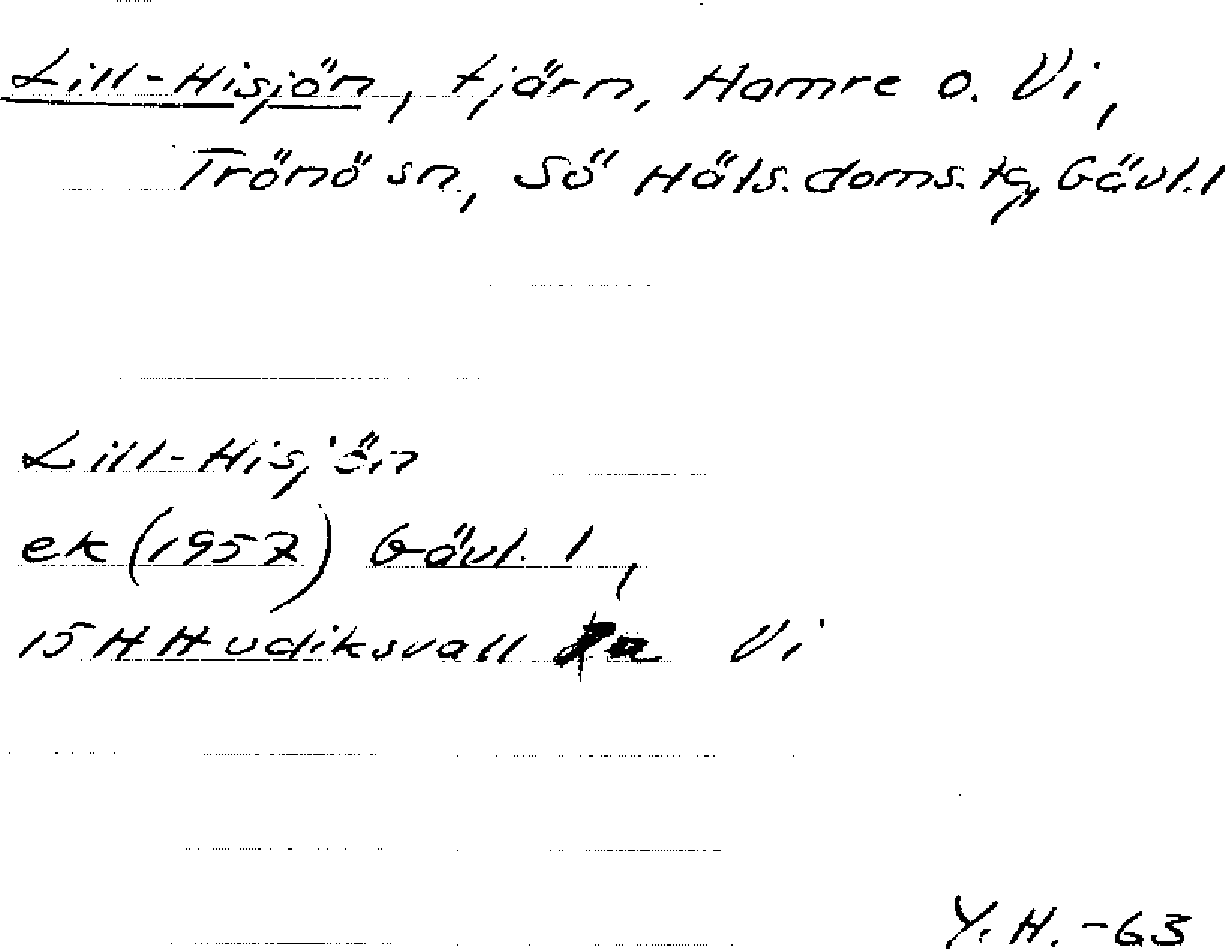 Lill-Hisjön, tjärn, Hamre o. Vi,
Trönö sn, Sö Häls. doms. tg, Gävl. l
Lill-Hisjön
ek (1957) Gävl. l,
15 H Hudiksvall Vi
Y. H. -63